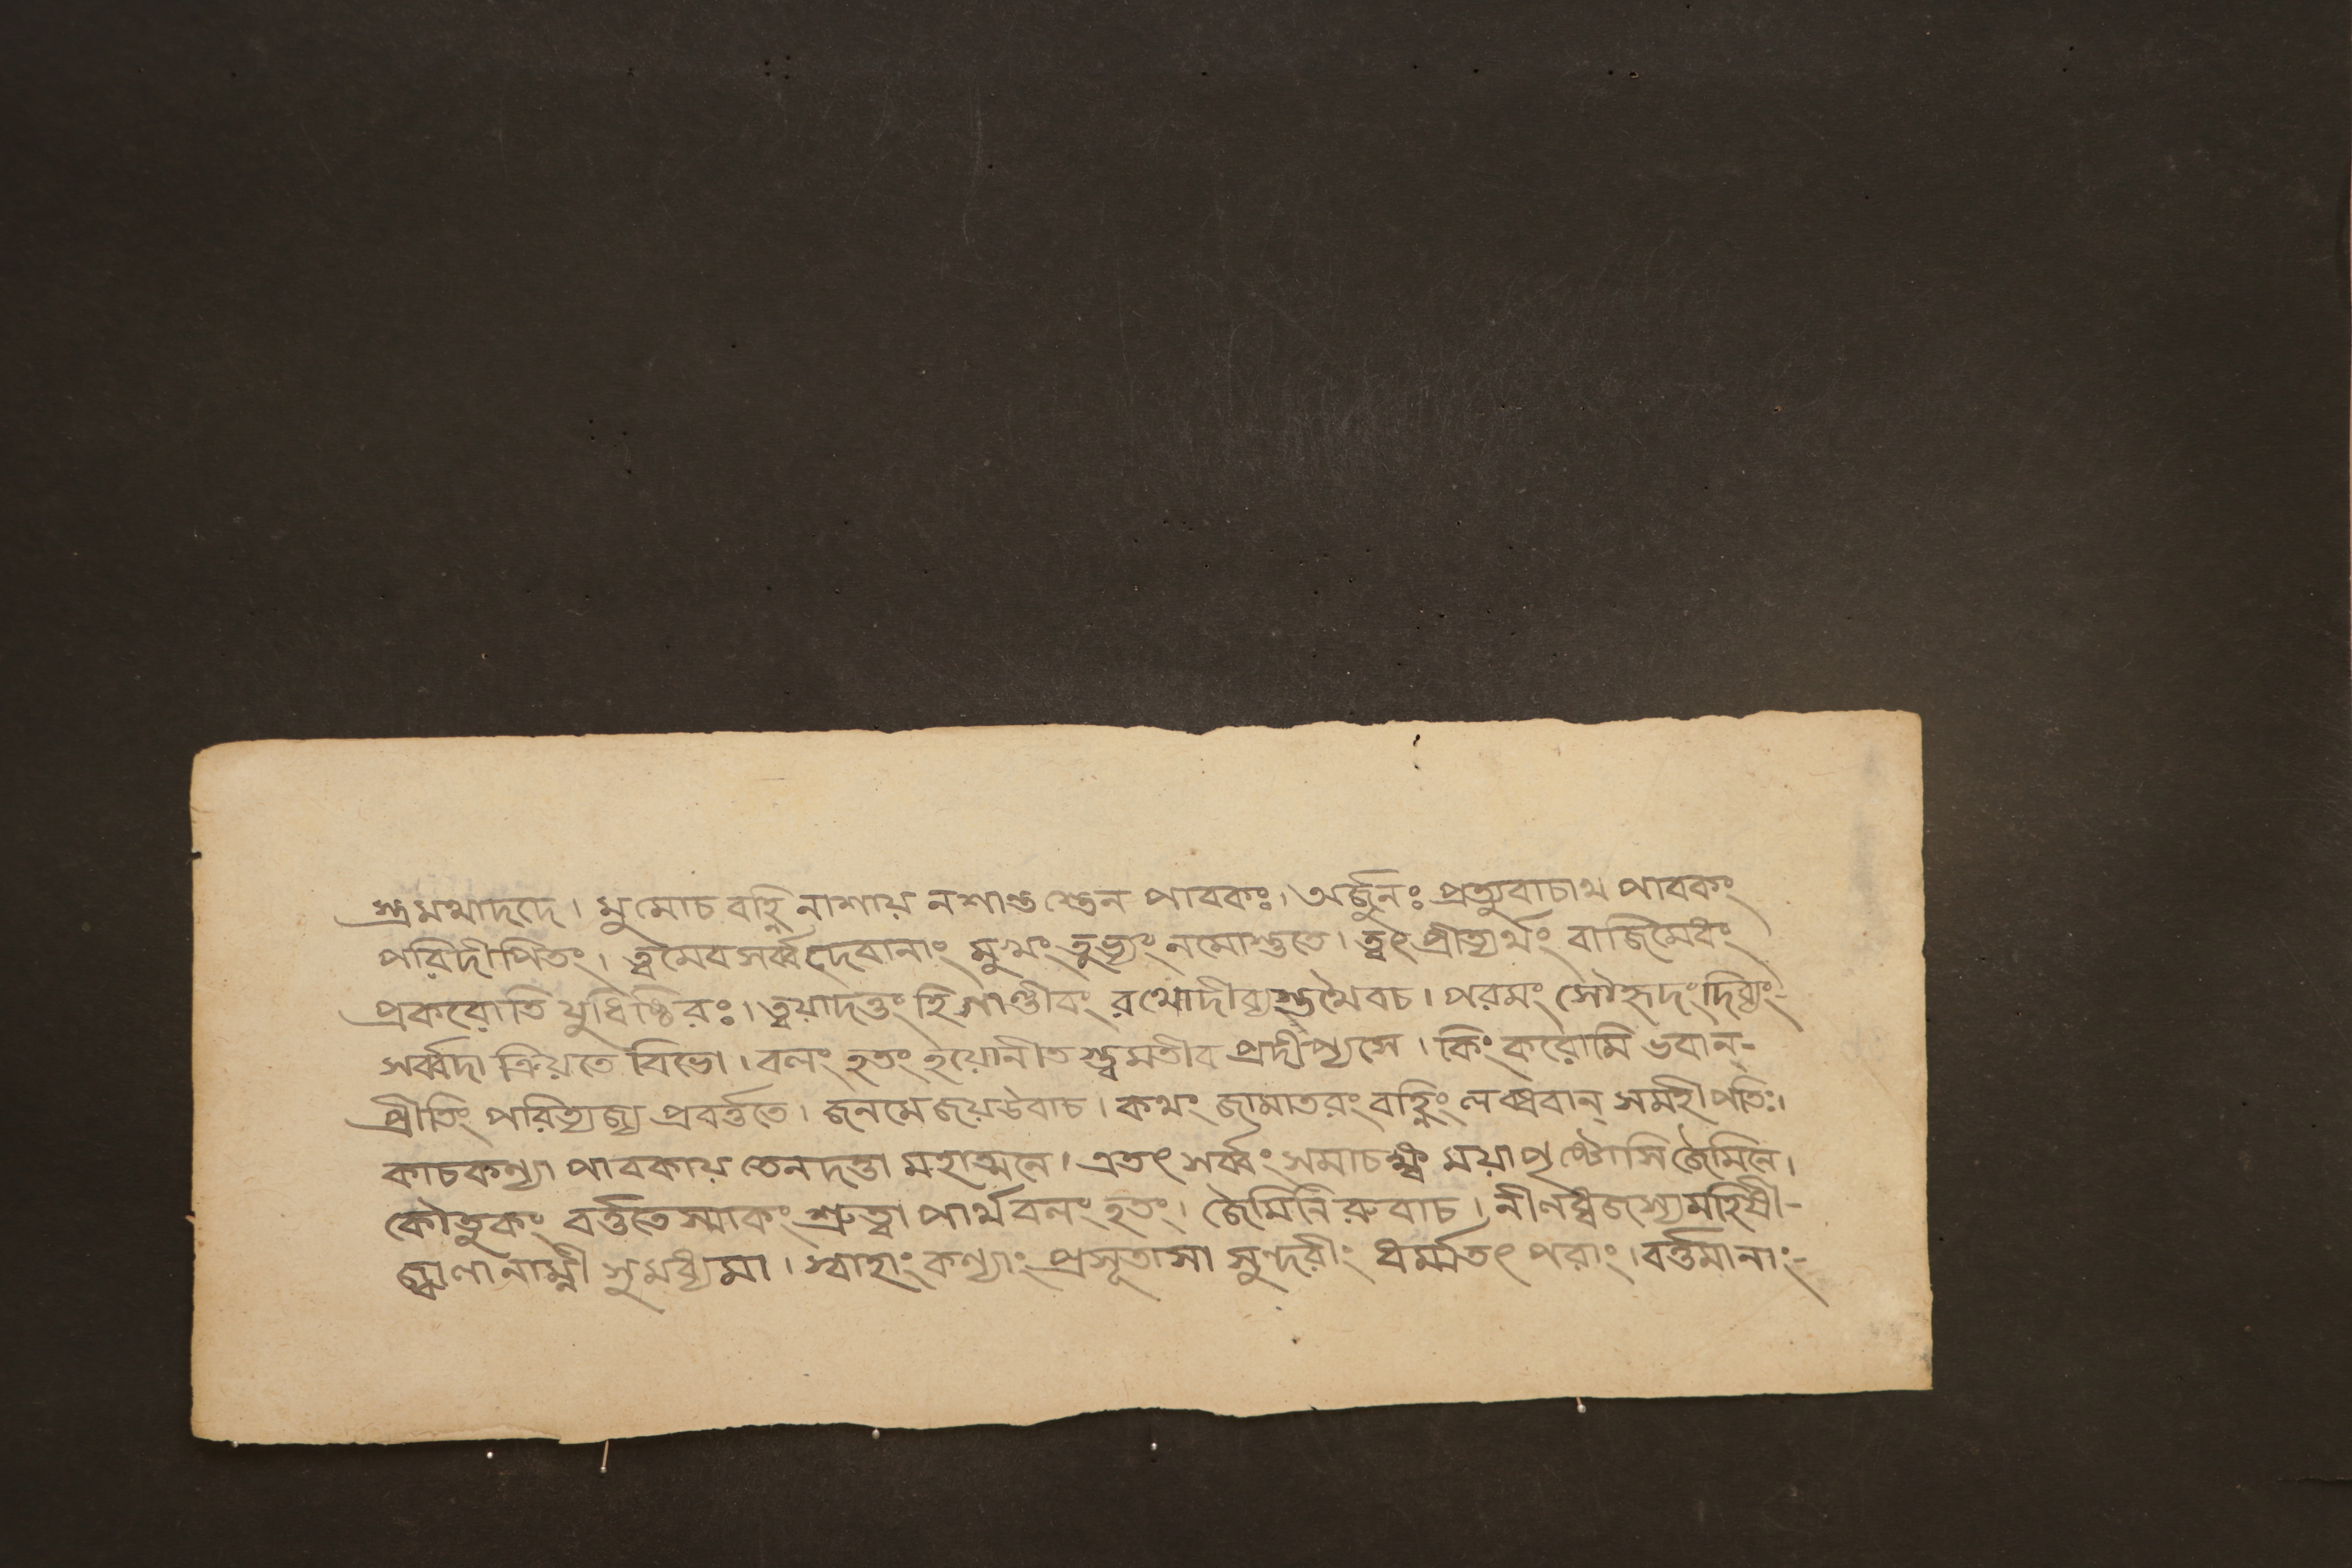 স্ত্রমথাদদে। মুমোচ বহ্নিনাশায় নশান্তস্তেন পাবকঃ। অর্জুনঃ প্রত্যুবাচাথ পাবকং
পরিদীপিতং। ত্বমেব সর্ব্বদেবানাং মুখং তুভ্যং নমোস্তুতে। ত্বৎ প্রীত্যর্থং বাজিমেধং
প্রকরোতি যুধিষ্ঠিরঃ। ত্বয়াদত্তং হি গাণ্ডীবং রথোদীব্যস্তথৈবচ। পরমং সৌহৃদং দিব্যং-
সর্ব্বদা ক্রিয়তে বিভো। বলং হতং হয়োনীতস্ত্বমতীব প্রদীপ্যসে। কিং করোমি ভবান্-
প্রীতিং পরিত্যজ্য প্রবর্ত্ততে। জনমেজয়উবাচ। কথং জামাতরং বহ্নিং লব্ধবান্ সমহীপতিঃ।
কাচকন্যা পাবকায় তেনদত্তা মহাত্মনে। এতৎ সর্ব্বং সমাচক্ষ্ব ময়াপৃষ্টোসি জৈমিনে।
কৌতুকং বর্ত্ততেস্মাকং শ্রুত্বা পার্থবলং হতং। জৈমিনিরুবাচ। নীলধ্বজস্যমহিষী-
জ্বালানাম্নী সুমধ্যমা। স্বাহাং কন্যাং প্রসূতাসা সুন্দরীং ধর্ম্মতৎ পরাং। বর্ত্তমানাং-